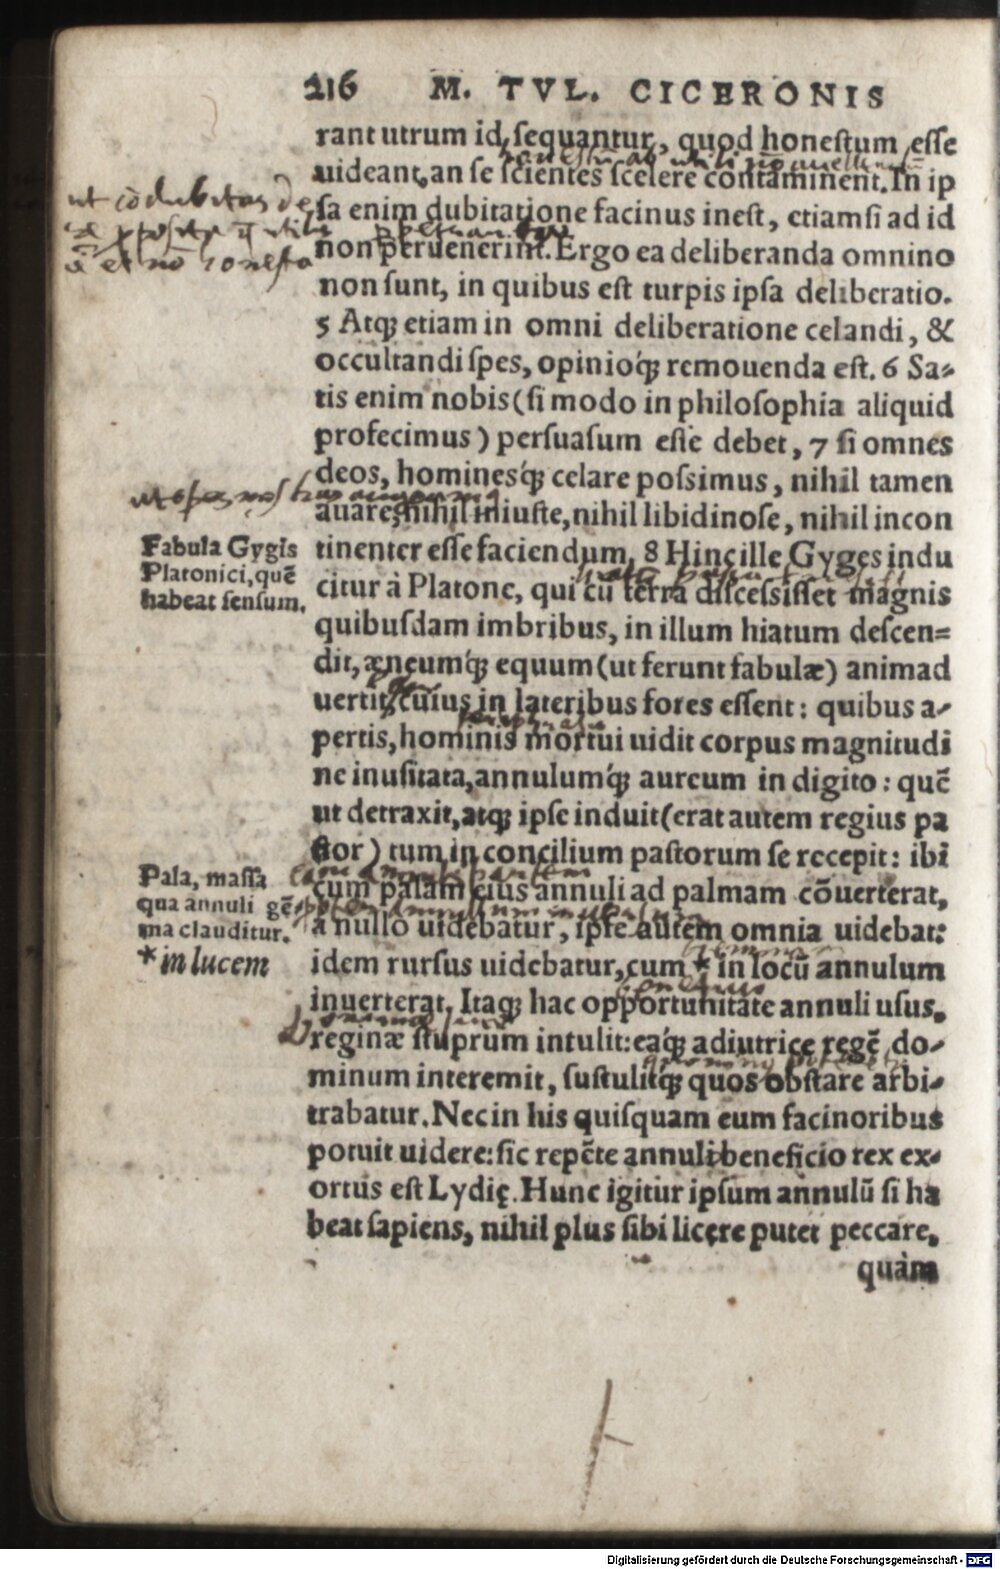 216 M. TVL. CICERONIS
rant utrum id sequantur, quod honestum esse
uideant, an se scientes scelere contaminent. In ip
sa enim dubitatione facinus inest, etiamsi ad id
non peruenerint. Ergo ea deliberanda omnino
non sunt, in quibus est turpis ipsa deliberatio.
5 Atq́; etiam in omni deliberatione celandi, &
occultandi spes, opinioq́; remouenda est. 6 Sa-
tis enim nobis (si modo in philosophia aliquid
profecimus) persuasum esse debet, 7 si omnes
deos, hominesq́; celare possimus, nihil tamen
auare, nihil iniuste, nihil libidinose, nihil incon
tinenter esse faciendum. 8 Hinc ille Gyges indu
citur à Platone, qui cũ terra discessisset magnis
quibusdam imbribus, in illum hiatum descen=
dit, æneumq́; equum (ut ferunt fabulæ) animad
uertit, cuius in lateribus fores essent: quibus a-
pertis, hominis mortui uidit corpus magnitudi
ne inusitata, annulumq́; aureum in digito: quẽ
ut detraxit, atq; ipse induit (erat autem regius pa
stor) tum in concilium pastorum se recepit: ibi
cum palam eius annuli ad palmam cõuerterat,
a nullo uidebatur, ipse autem omnia uidebat:
idem rursus uidebatur, cum * in locũ annulum
inuerterat. Itaq; hac opportunitate annuli usus,
reginæ stuprum intulit: eaq́; adiutrice regẽ do-
minum interemit, sustulitq́; quos obstare arbi-
trabatur. Nec in his quisquam eum facinoribus
potuit uidere: sic repẽte annuli beneficio rex ex-
ortus est Lydię. Hunc igitur ipsum annulũ si ha
beat sapiens, nihil plus sibi licere putet peccare,
quàm
ut
de
et nõ honesta
Fabula Gygis
Platonici, quẽ
habeat sensum.
Pala, massa
qua annuli gẽ-
ma clauditur.
* in lucem
Digitalisierung gefördert durch die Deutsche Forschungsgemeinschaft - DFG